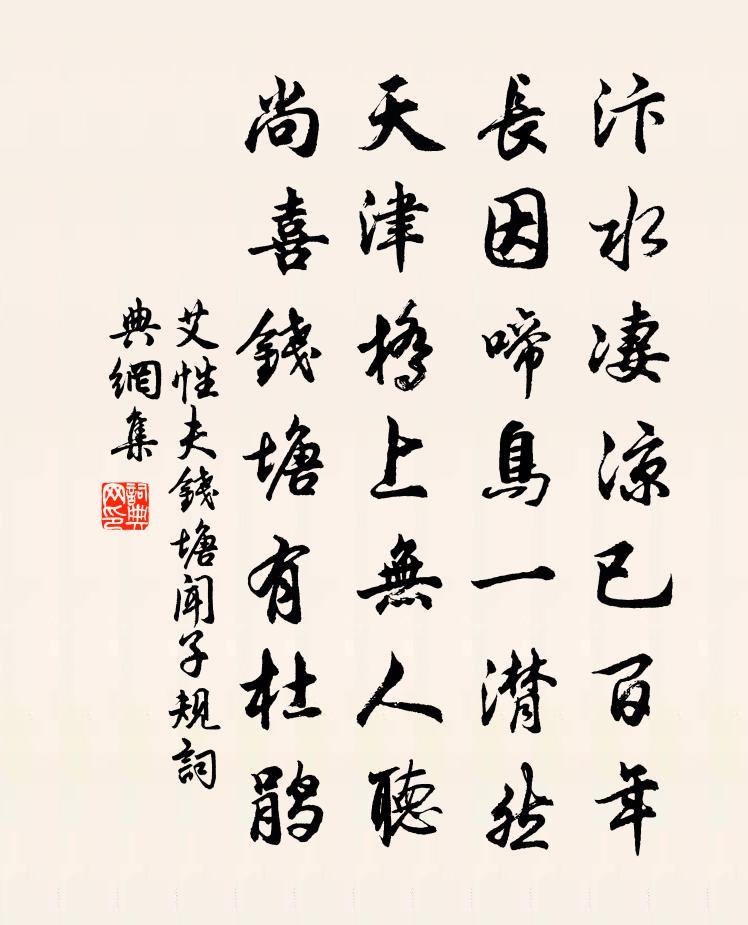 汴水凄涼已百年
長因啼鳥一潸然
天津橋上無人聽
尚喜錢塘有杜鵑
艾性夫錢塘聞子規詞
典網集
詞典
网印